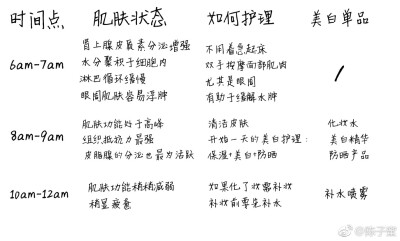 时间点 肌肤状态 如何护理 美白单品
6am-7am
肾上腺皮质素分泌增强
水分聚积于细胞内
淋巴循环缓慢
眼周肌肤容易浮肿
不用着急起床
双手按摩面部肌肉
尤其是眼周
有助于缓解水肿
/
8am-9am
肌肤功能处于高峰
组织抵抗力最强
皮脂腺的分泌也最为活跃
清洁皮肤
开始一天的美白护理:
保湿+美白+防晒
化妆水
美白精华
防晒产品
10am-12am
肌肤功能稍稍减弱
稍显疲惫
如果化了妆需补妆
补妆前要先补水
补水喷雾